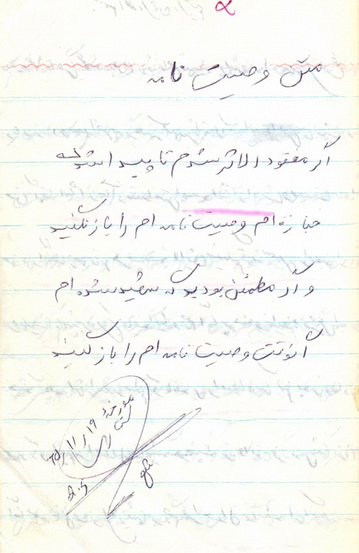 متن وصیت نامه
اگر مفقودالاثر شدم تا پیدا شدن
جنازه ام وصیت نامه ام را باز نکنید
و اگر مطمئن بودید که شهید شده ام
آنوقت وصیت نامه ام را باز کنید
مورخه
۱۱/۱۹